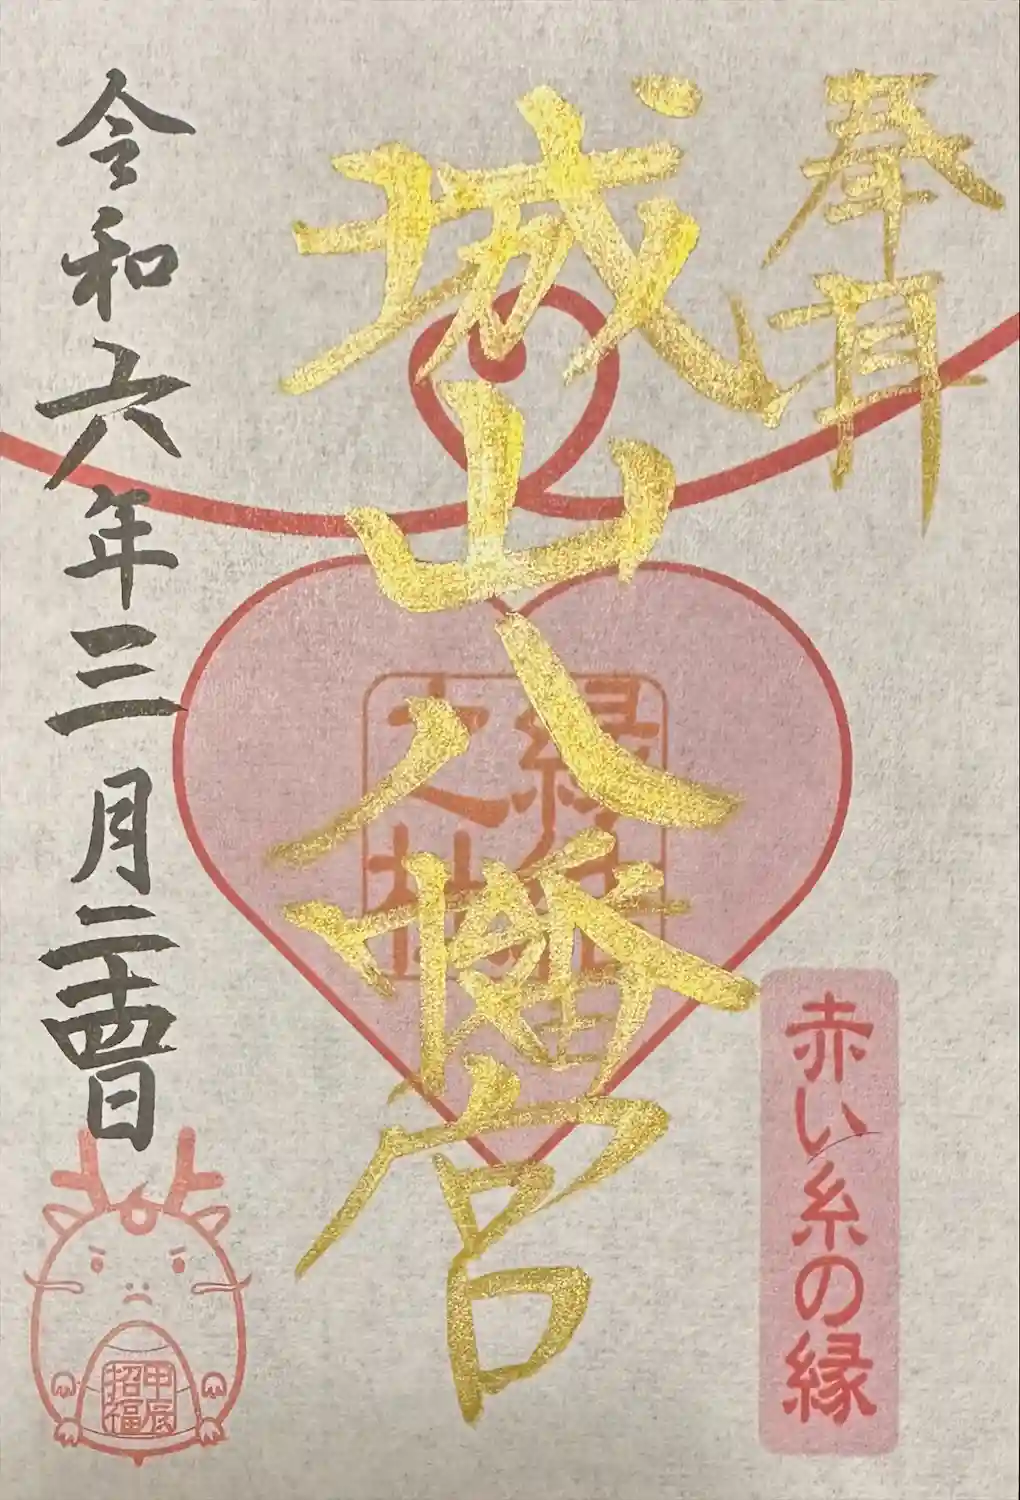 奉拝
城山八幡宮
赤い糸の縁
縁結
之杜
令和六年三月二十四日
甲辰
招福